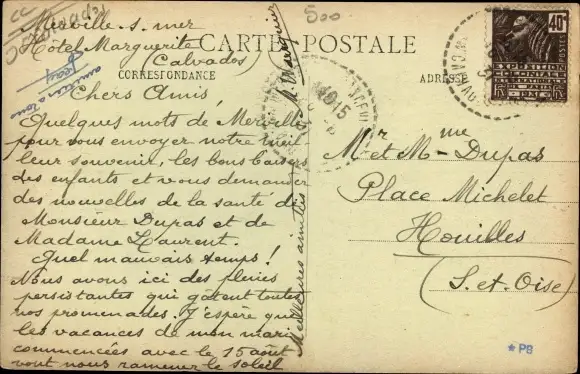 Merville-s-mer
Hôtel Marguerite
(Calvados)
CARTE POSTALE
CORRESPONDANCE
ADRESSE
500
Chers Amis,
Quelques mots de Merville
pour vous envoyer notre meil
leur souvenir, les bons baisers
des enfants et vous demander
des nouvelles de la santé de
Monsieur Dupas et de
Madame Laurent.
Quel mauvais temps!
Nous avons ici des pluies
persistantes qui gâtent toutes
nos promenades. J'espère que
les vacances de mon mari
commencées avec le 15 août
vont nous ramener le soleil
Meilleures amitiés
Mr et Mme Dupas
Place Michelet
Houilles
(S.-et-Oise)
40c
POSTES
*PB